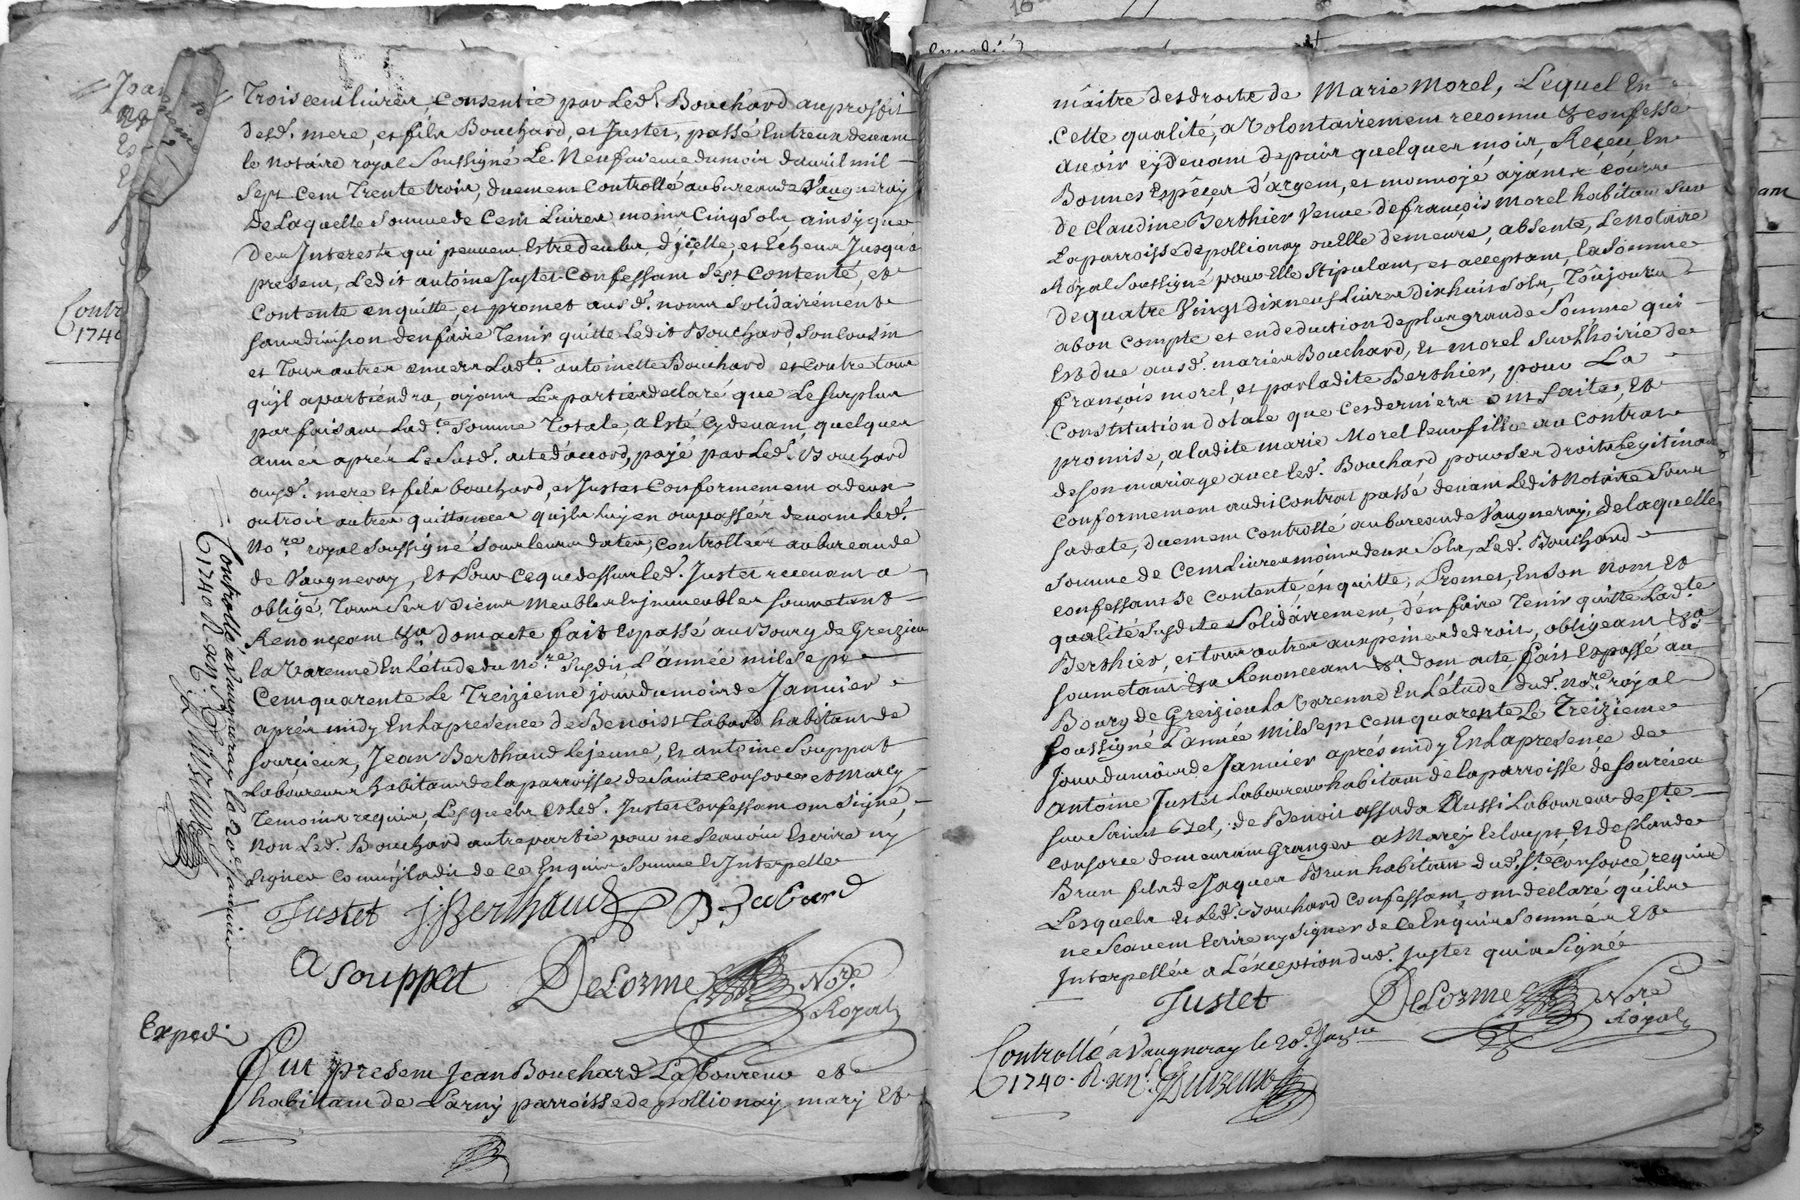 Trois cent livres, consentie par Led.t Bouchard au proffit
desd. mere, et fils Bouchard, et Justet, passé Entreux devant
le notaire royal Soussigné Le Neufvieme du mois d'avril mil
Sept Cent Trente trois, duement Controllé au bureau de Vaugneray
De Laquelle Somme de Cent Livres moins Cinq Sols, ainsy que
Des Interests qui peuvent Estre deubs d'jcelle, et Echeus Jusqu'a
present, Ledit antoine Justet Confessant S'est Contenté, et
Contente en quitte, et promet ausd. noms Solidairement
sans division d'en faire Tenir quitte Ledit Bouchard, Son Cousin
et Tous autres envers Lad.te antoinette Bouchard, et Contre tous
qu'jl apartiéndra, ayant Les parties declaré que Le Surplus
parfaisant Lad.e Somme Totale, a Esté Cy devant, quelques
années aprés Le Susd. acte d'accord, payé par Led. Bouchard
ausd. mere Et fils bouchard, et Justet Conformement a deux
ou trois autres quittances qu'jls luy en ont passées devant Led.
No.re royal Soussigné Sous leurs dates, Controllées au bureau de
de Vaugneray, Et Pour Ce que dessus led. Justet recevant a
obligé, Tous Ses Biens Meubles Et jmmeubles soumetant
Renonçant &a dont acte fait Et passé au Bourg de Greizieu
la Varenne En L'étude du No.re Susdit, L'année mil Sept
Cent quarente Le Treizieme jour du mois de Janvier
aprés midy En la presence de Benoist Tabard habitant de
Sourcieux, Jean Berthaud le jeune, Et antoine Souppat
Laboureurs habitans de la parroisse de Sainte Consorce et Marcy
Temoins requis, Lesquels et Led. Justet Confessant ont Signé,
Non Led. Bouchard autre partie pour ne Scavoir Escrire ny
Signer Comme jl a dit de Ce Enquis Sommé Et Interpellé
Justet J. Berthaud B. Tabard
A Souppat DeLorme No.re Royal
Controllé a Vaugneray le 20e Janvier
1740
Contr
1740
Expedié
Fut present Jean Bouchard Laboureur et
habitant de Larny parroisse de pollionay mary Et
maitre des droits de Marie Morel, Lequel En
Cette qualité, a Volontairement reconnu & confessé
avoir cy devant depuis quelques mois, Reçeu En
Bonnes Espéces d'argent, et monnoyé ayant cours
de Claudine Berthier Veuve de françois Morel habitant sur
La parroisse de pollionay ou Elle demeure, absente, Le notaire
Royal Soussigné pour Elle Stipulant, et acceptant, la Somme
De quatre Vingt dix neuf Livres dix huit Sols, Toujours
a bon compte et en deduction de plus grande Somme qui
Est due ausd. mariés Bouchard, Et Morel Sur l'hoirie de
françois morel, et par ladite Berthier, pour La
Constitution dotale que Ces derniers ont faite, Et
promise, a ladite marie Morel leur fille au Contrat
de Son mariage avec led. Bouchard pour Ses droits Legitimes
Conformement audit Contrat passé devant Ledit Notaire Sous
Sa date, duement Controllé au bureau de Vaugneray, de laquelle
Somme de Cent Livres moins deux Sols, Led. Bouchard
confessant Se Contente, en quitte, Promet, En Son Nom Et
qualité Susdite Solidairement, d'en faire Tenir quitte Lad.te
Berthier, et tous autres aux peines de droit, obligeant &a
Soumetant &a Renonceant &a dont acte, fait Et passé au
Bourg de Greizieu La Varenne En L'étude dud. No.re royal
Soussigné L'année Mil Sept Cent quarente Le Treizieme
Jour du mois de Janvier aprés midy En La presence de
antoine Justet Laboureur habitant de la parroisse de Sourcieu
Sur Saint Bel, de Benoit assada Aussi Laboureur de S.te
Consorce demeurant Granger a Marcy le loup, Et de Claude
Brun fils de Jaques Brun habitant dud. S.te Consorce, requis
Lesquels Et Led. Bouchard Confessant, ont declaré qu'ils
ne Scavent Ecrire ny Signer de Ce Enquis Sommés Et
Interpellés a L'exception dud. Justet qui a Signé
Justet DeLorme No.re Royal
Controllé a Vaugneray le 20e Jan
1740.